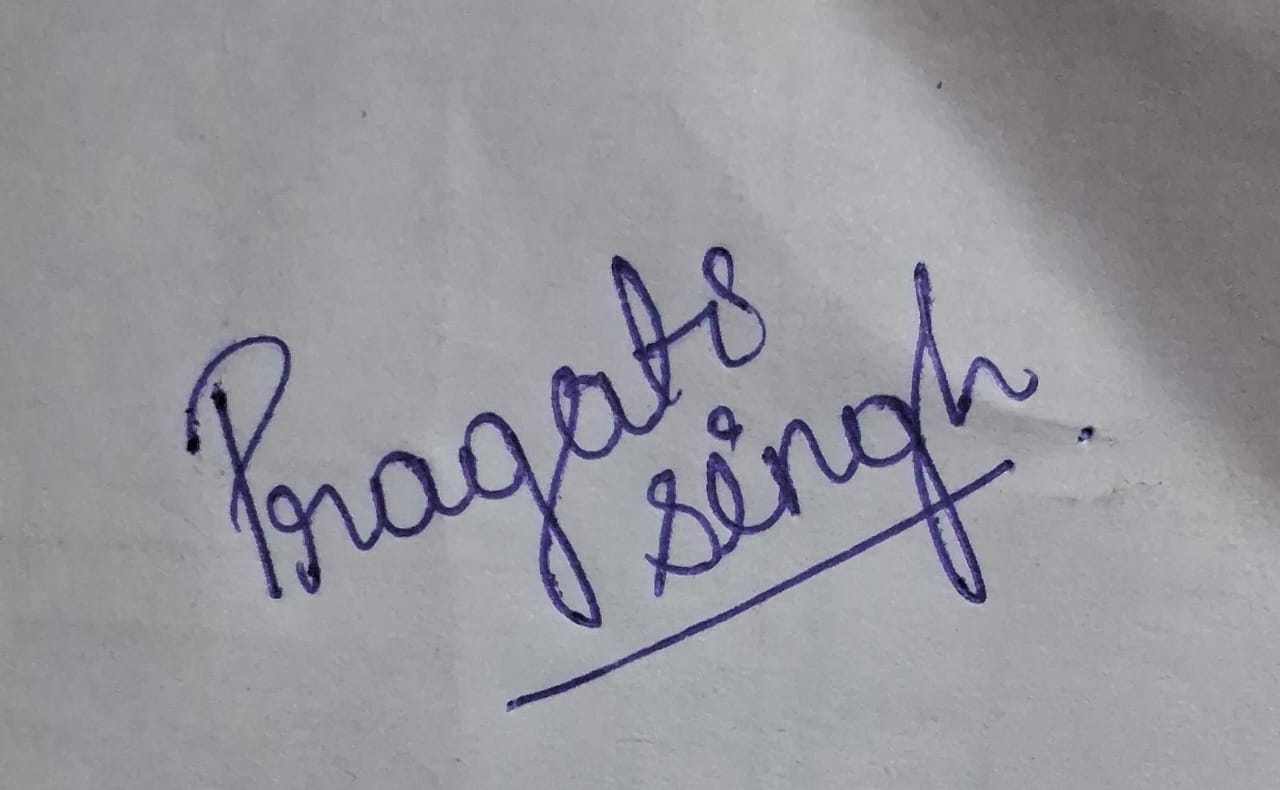 Pragati
Singh.